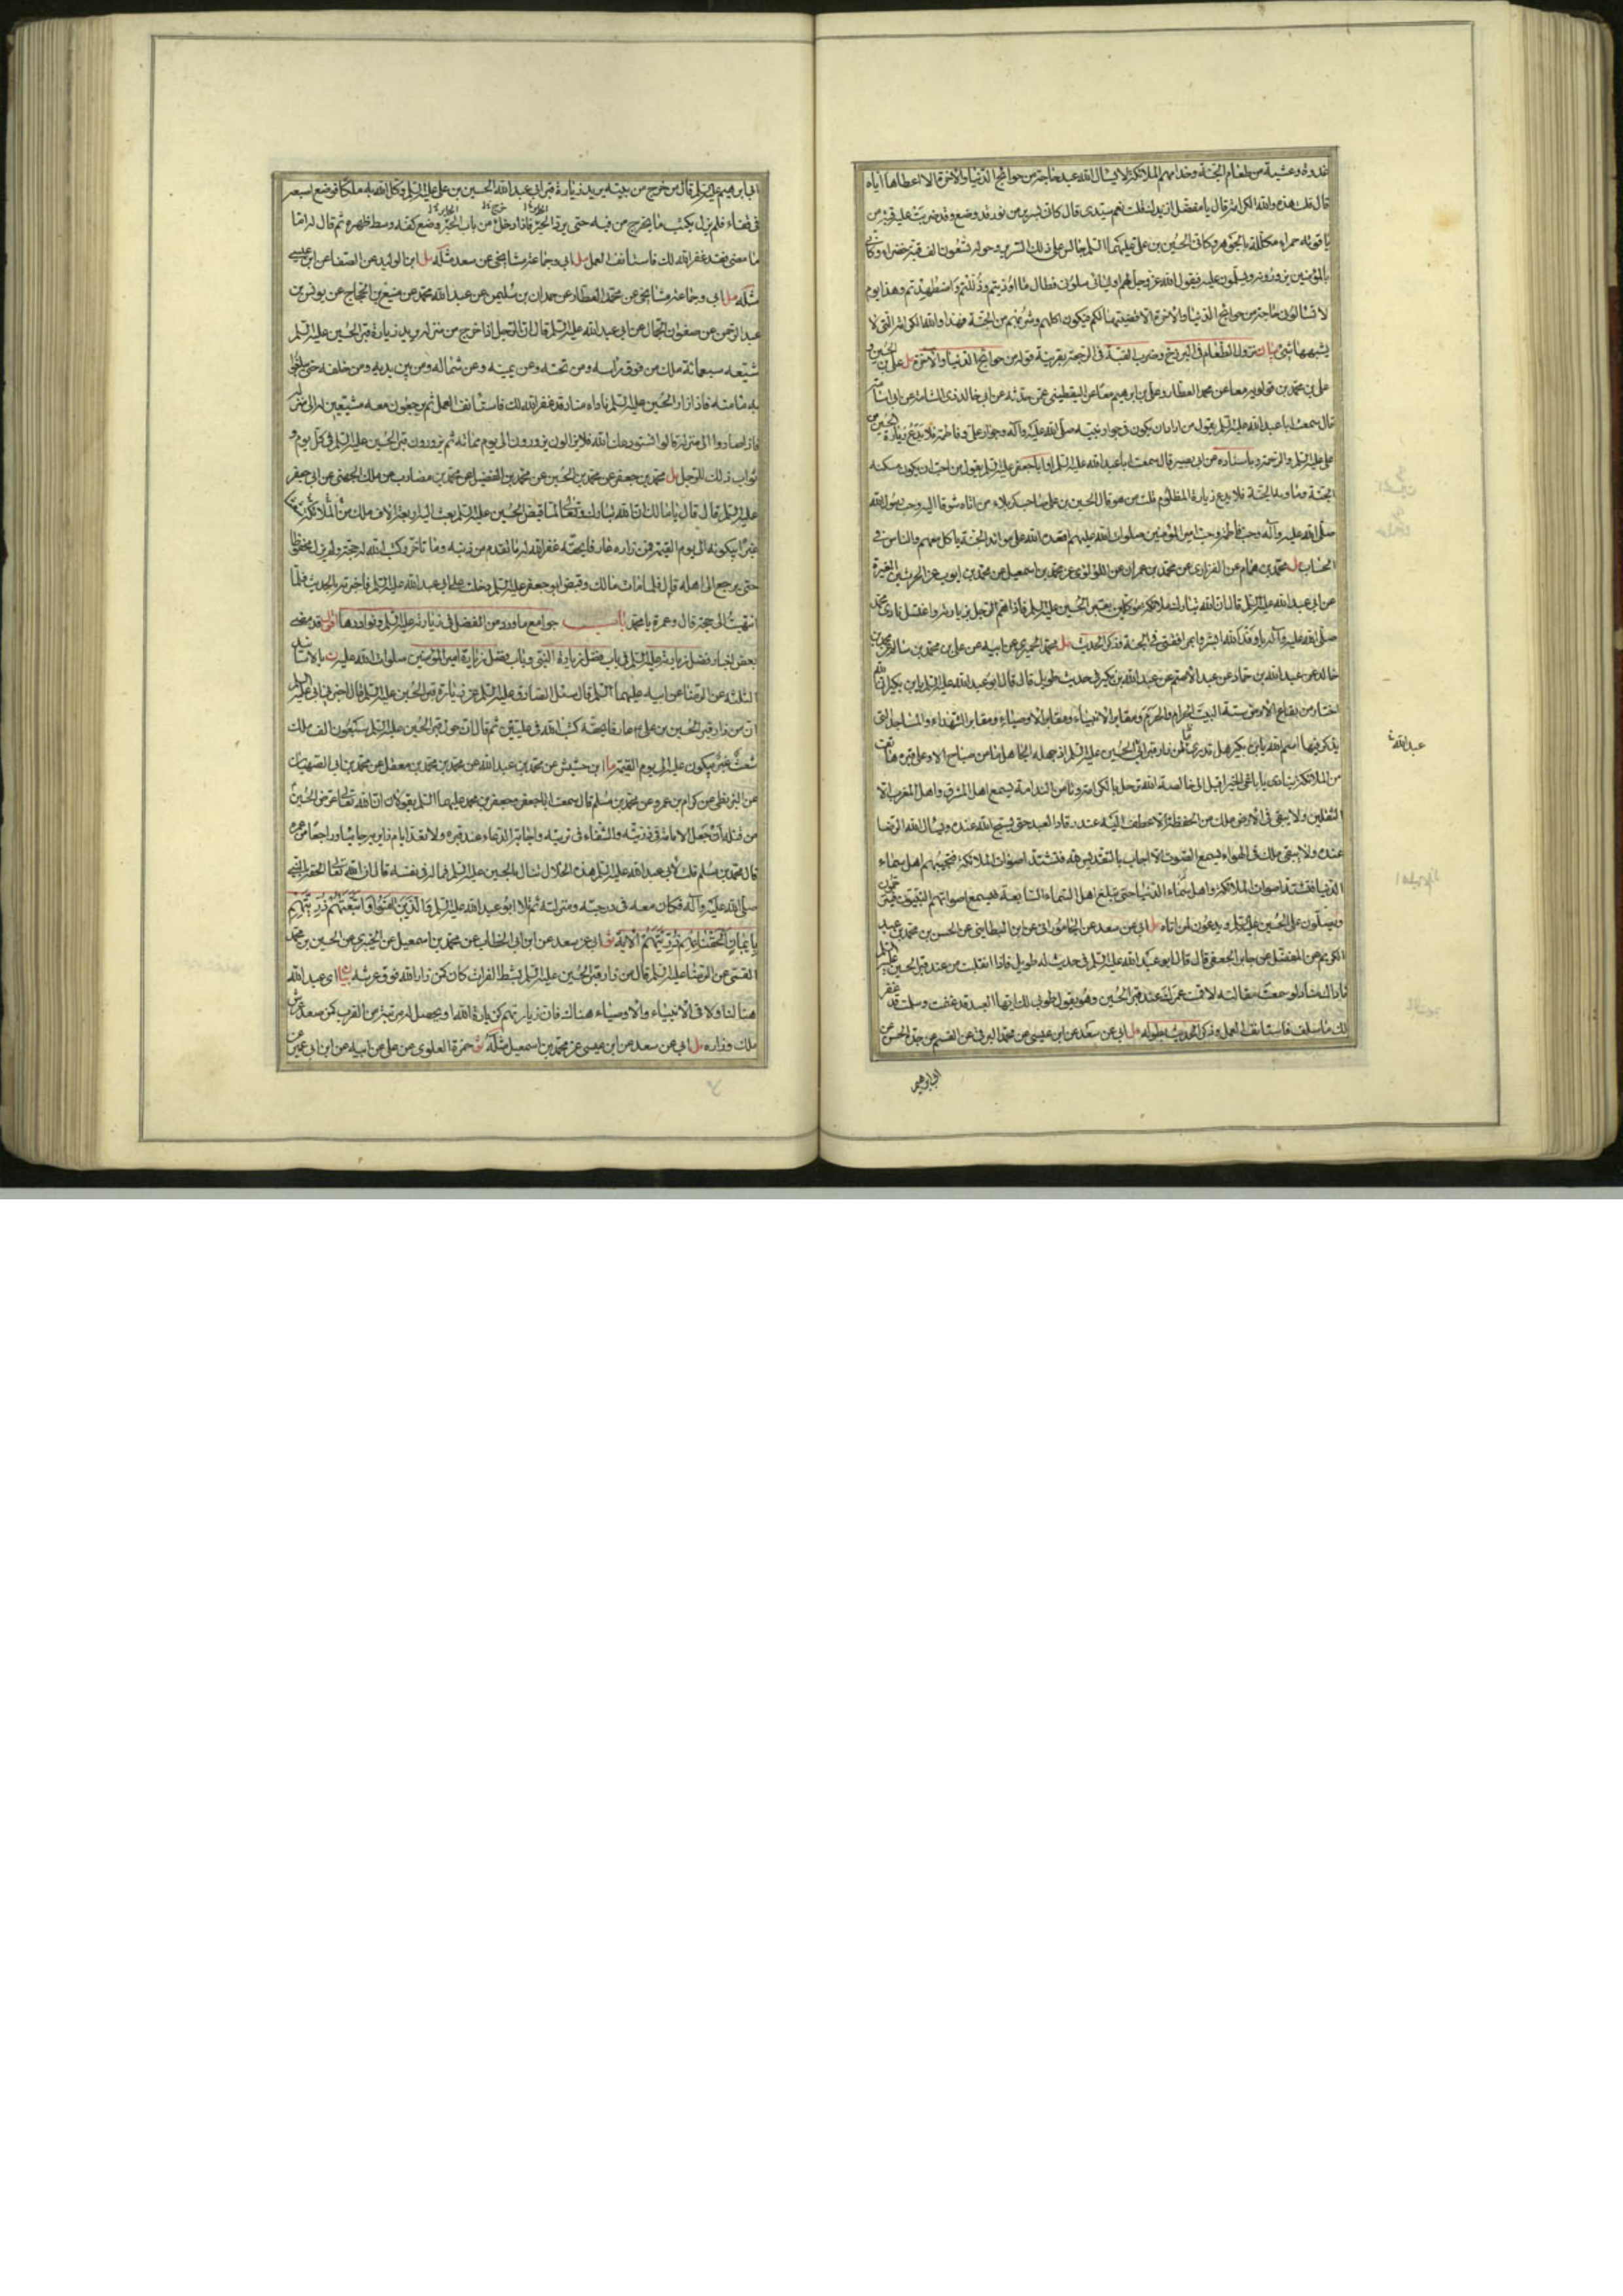 غدوة وعشية من طعام الجنة وخدامهم الملائكة لا يسال الله عبد حاجة من حوائج الدنيا والاخرة الا اعطاها اياه
قال قلت هذه والله الكرامة قال يا مفضل ازيدك قلت نعم سيدى قال كانى بسرير من نور قد وضع وقد ضربت عليه قبة من
ياقوتة حمراء مكللة بالجوهر وكانى بالحسين بن على عليهما السلم جالس على ذلك السرير وحوله تسعون الف قبة خضراء وكانى
بالمؤمنين يزورونه ويسلمون عليه فيقول الله عز وجل لهم اوليائى سلونى فطال ما اوذيتم وذللتم واضطهدتم وهذا يوم
لا تسألونى حاجة من حوائج الدنيا والاخرة الا قضيتها لكم فيكون اكلهم وشربهم من الجنة فهذا والله الكرامة التى لا
يشبهها شئ بيان نزول الطعام فى البرزخ وضرب القبة فى الرجعة بقرينة قوله من حوائج الدنيا والاخرة مل على بن الحسين و
على بن محمد بن قولويه معا عن محمد العطار وعلى بن ابراهيم معا عن اليقطينى عمن حدثه عن ابى خالد ذى الشامة عن ابى اسامة
قال سمعت ابا عبد الله عليه السلم يقول من اراد ان يكون فى جوار نبيه صلى الله عليه وآله وجوار على وفاطمة فلا يدع زيارة الحسين بن
على عليه السلم والرحمة وباسناده عن ابى بصير قال سمعت ابا عبد الله عليه السلم او ابا جعفر عليه السلم يقول من احب ان يكون مسكنه
الجنة وماويه الجنة فلا يدع زيارة المظلوم قلت من هو قال الحسين بن على صاحب كربلاء من اتاه شوقا اليه وحب رسول الله
صلى الله عليه وآله وحب فاطمة وحب امير المؤمنين صلوات الله عليهم اقعده الله على موائد الجنة ياكل معهم والناس فى
الحساب مل محمد بن همام عن الفزارى عن محمد بن عمران عن اللؤلؤى عن محمد بن اسمعيل عن محمد بن ايوب عن الحرث بن المغيرة
عن ابى عبد الله عليه السلم قال ان الله تبارك وتعالى ملائكة موكلين بقبر الحسين عليه السلم فاذا هم الرجل بزيارته واغتسل نادى محمد
صلى الله عليه وآله يا وفد الله ابشروا بمرافقتى فى الجنة فذكر الحديث مل محمد الحميرى عن ابيه عن على بن محمد بن سالم عن محمد بن
خالد عن عبد الله بن حماد عن عبد الله الاصم عن عبد الله بن بكير فى حديث طويل قال قال ابو عبد الله عليه السلم يا ابن بكير ان الله
اختار من بقاع الارض ستة البيت الحرام والحرم ومقابر الانبياء ومقابر الاوصياء ومقابر الشهداء والمساجد التى
يذكر فيها اسم الله يا ابن بكير هل تدرى ما لمن زار قبر ابى الحسين عليه السلم اذ جهله الجاهل ما من صباح الا وعلى قبره هاتف
من الملائكة ينادى يا باغى الخير اقبل الى خالصة الله ترحل بالكرامة وتامن الندامة يسمع اهل المشرق واهل المغرب الا
الثقلين ولا يبقى فى الارض ملك من الحفظة الا عطف اليه عند رقاد العبد حتى يسبح الله عنده ويسال الله الرضا
عنده ولا يبقى ملك فى الهواء يسمع الصوت الا اجاب بالتقديس لله فتشتد اصوات الملائكة فتجيبهم اهل سماء
الدنيا فتشتد اصوات الملائكة واهل سماء الدنيا حتى تبلغ اهل السماء السابعة فيسمع اصواتهم النبيون فيترحمون
ويصلون على الحسين عليه السلم ويدعون لمن اتاه مل ابى عن سعد عن الجامورانى عن ابن البطاينى عن الحسن بن محمد بن عبد
الكريم عن المفضل عن جابر الجعفى قال قال ابو عبد الله عليه السلم فى حديث له طويل فاذا انقلبت من عند قبر الحسين عليه السلم
ناداك مناد لو سمعت مقالته لاقمت عمرك عند قبر الحسين وهو يقول طوبى لك ايها العبد قد غنمت وسلمت قد غفر
لك ما سلف فاستانف العمل وذكر الحديث بطوله مل ابى عن سعد عن ابن عيسى عن محمد البرقى عن القسم عن جده الحسن عن
ابى ابراهيم
عبد الله
ابى ابراهيم عليه السلم قال من خرج من بيته يريد زيارة قبر ابى عبد الله الحسين بن على عليه السلم وكل الله به ملكا فوضع اصبعه
فى قفاه فلم يزل يكتب ما يخرج من فيه حتى يرد الحير فاذا دخل من باب الحير وضع كفه وسط ظهره ثم قال له اما
ما مضى فقد غفر الله لك فاستانف العمل مل ابى وجماعة مشايخى عن سعد مثله مل ابن الوليد عن الصفار عن ابن عيسى
مثله مل ابى وجماعة مشايخى عن محمد العطار عن حمدان بن سليمن عن عبد الله محمد عن منيع بن الحجاج عن يونس بن
عبد الرحمن عن صفوان الجمال عن ابى عبد الله عليه السلم قال ان الرجل اذا خرج من منزله يريد زيارة قبر الحسين عليه السلم
شيعه سبعمائة ملك من فوق راسه ومن تحته وعن يمينه وعن شماله ومن بين يديه ومن خلفه حتى يبلغوا
به مامنه فاذا زار الحسين عليه السلم ناداه مناد قد غفر الله لك فاستانف العمل ثم يرجعون معه مشيعين له الى منزله
فاذا صاروا الى منزله قالوا استودعك الله فلا يزالون يزورونه الى يوم مماته ثم يزورون قبر الحسين عليه السلم فى كل يوم و
ثواب ذلك للرجل مل محمد بن جعفر عن محمد بن الحسين عن محمد بن الفضيل عن محمد بن مضارب عن ملك الجهنى عن ابى جعفر
عليه السلم قال قال يا مالك ان الله تبارك وتعالى لما قبض الحسين عليه السلم بعث اليه اربعة الاف ملك من الملائكة شعثا
غبرا يبكونه الى يوم القيمة فمن زاره عارفا بحقه غفر الله له ما تقدم من ذنبه وما تاخر وكتب الله له حجة ولم يزل محفوظا
حتى يرجع الى اهله قال فلما مات مالك وقبض ابو جعفر عليه السلم دخلت على ابى عبد الله عليه السلم فاخبرته بالحديث فلما
انتهيت الى حجة قال وعمرة يا محمد باب جوامع ما ورد من الفضل فى زيارته عليه السلم ونوادرها اقول قد مضى
بعض اخبار فضل زيارته عليه السلم فى باب فضل زيارة النبى وباب فضل زيارة امير المؤمنين صلوات الله عليه ن بالاسانيد
الثلثة عن الرضا عن ابيه عليهما السلم قال سئل الصادق عليه السلم عن زيارة قبر الحسين عليه السلم قال اخبرنى ابى عليه السلم
ان من زار قبر الحسين بن على ع عارفا بحقه كتب الله فى عليين ثم قال ان حول قبر الحسين عليه السلم سبعون الف ملك
شعث غبر يبكون عليه الى يوم القيمة ما ابن حشيش عن محمد بن عبد الله عن محمد بن محمد بن معقل عن محمد بن ابى الصهبان
عن البزنطى عن كرام بن عمرو عن محمد بن مسلم قال سمعت ابا جعفر وجعفر بن محمد عليهما السلم يقولان ان الله تعالى عوض الحسين
من قتله ان جعل الامامة فى ذريته والشفاء فى تربته واجابة الدعاء عند قبره ولا تعد ايام زايريه جائيا وراجعا من عمره
قال محمد بن مسلم قلت لابى عبد الله عليه السلم هذه الخلال تنال بالحسين عليه السلم فما له فى نفسه قال ان الله تعالى الحقه بالنبى
صلى الله عليه وآله فكان معه فى درجته ومنزلته ثم تلا ابو عبد الله عليه السلم والذين امنوا واتبعتهم ذريتهم
بايمان الحقنا بهم ذريتهم الاية ثو ابى عن سعد عن ابن ابى الخطاب عن محمد بن اسمعيل عن الخيبرى عن الحسين بن محمد
القمى عن الرضا عليه السلم قال من زار قبر الحسين عليه السلم بشط الفرات كان كمن زار الله فوق عرشه بيان اى عبد الله
هناك ولاقى الانبياء والاوصياء هناك فان زيارتهم كزيارة الله او يحصل له مرتبة من القرب كمن صعد عرش
ملك وزاره مل ابى عن سعد عن ابن عيسى عن محمد بن اسمعيل مثله ثو حمزة العلوى عن على عن ابيه عن ابن ابى عمير عن